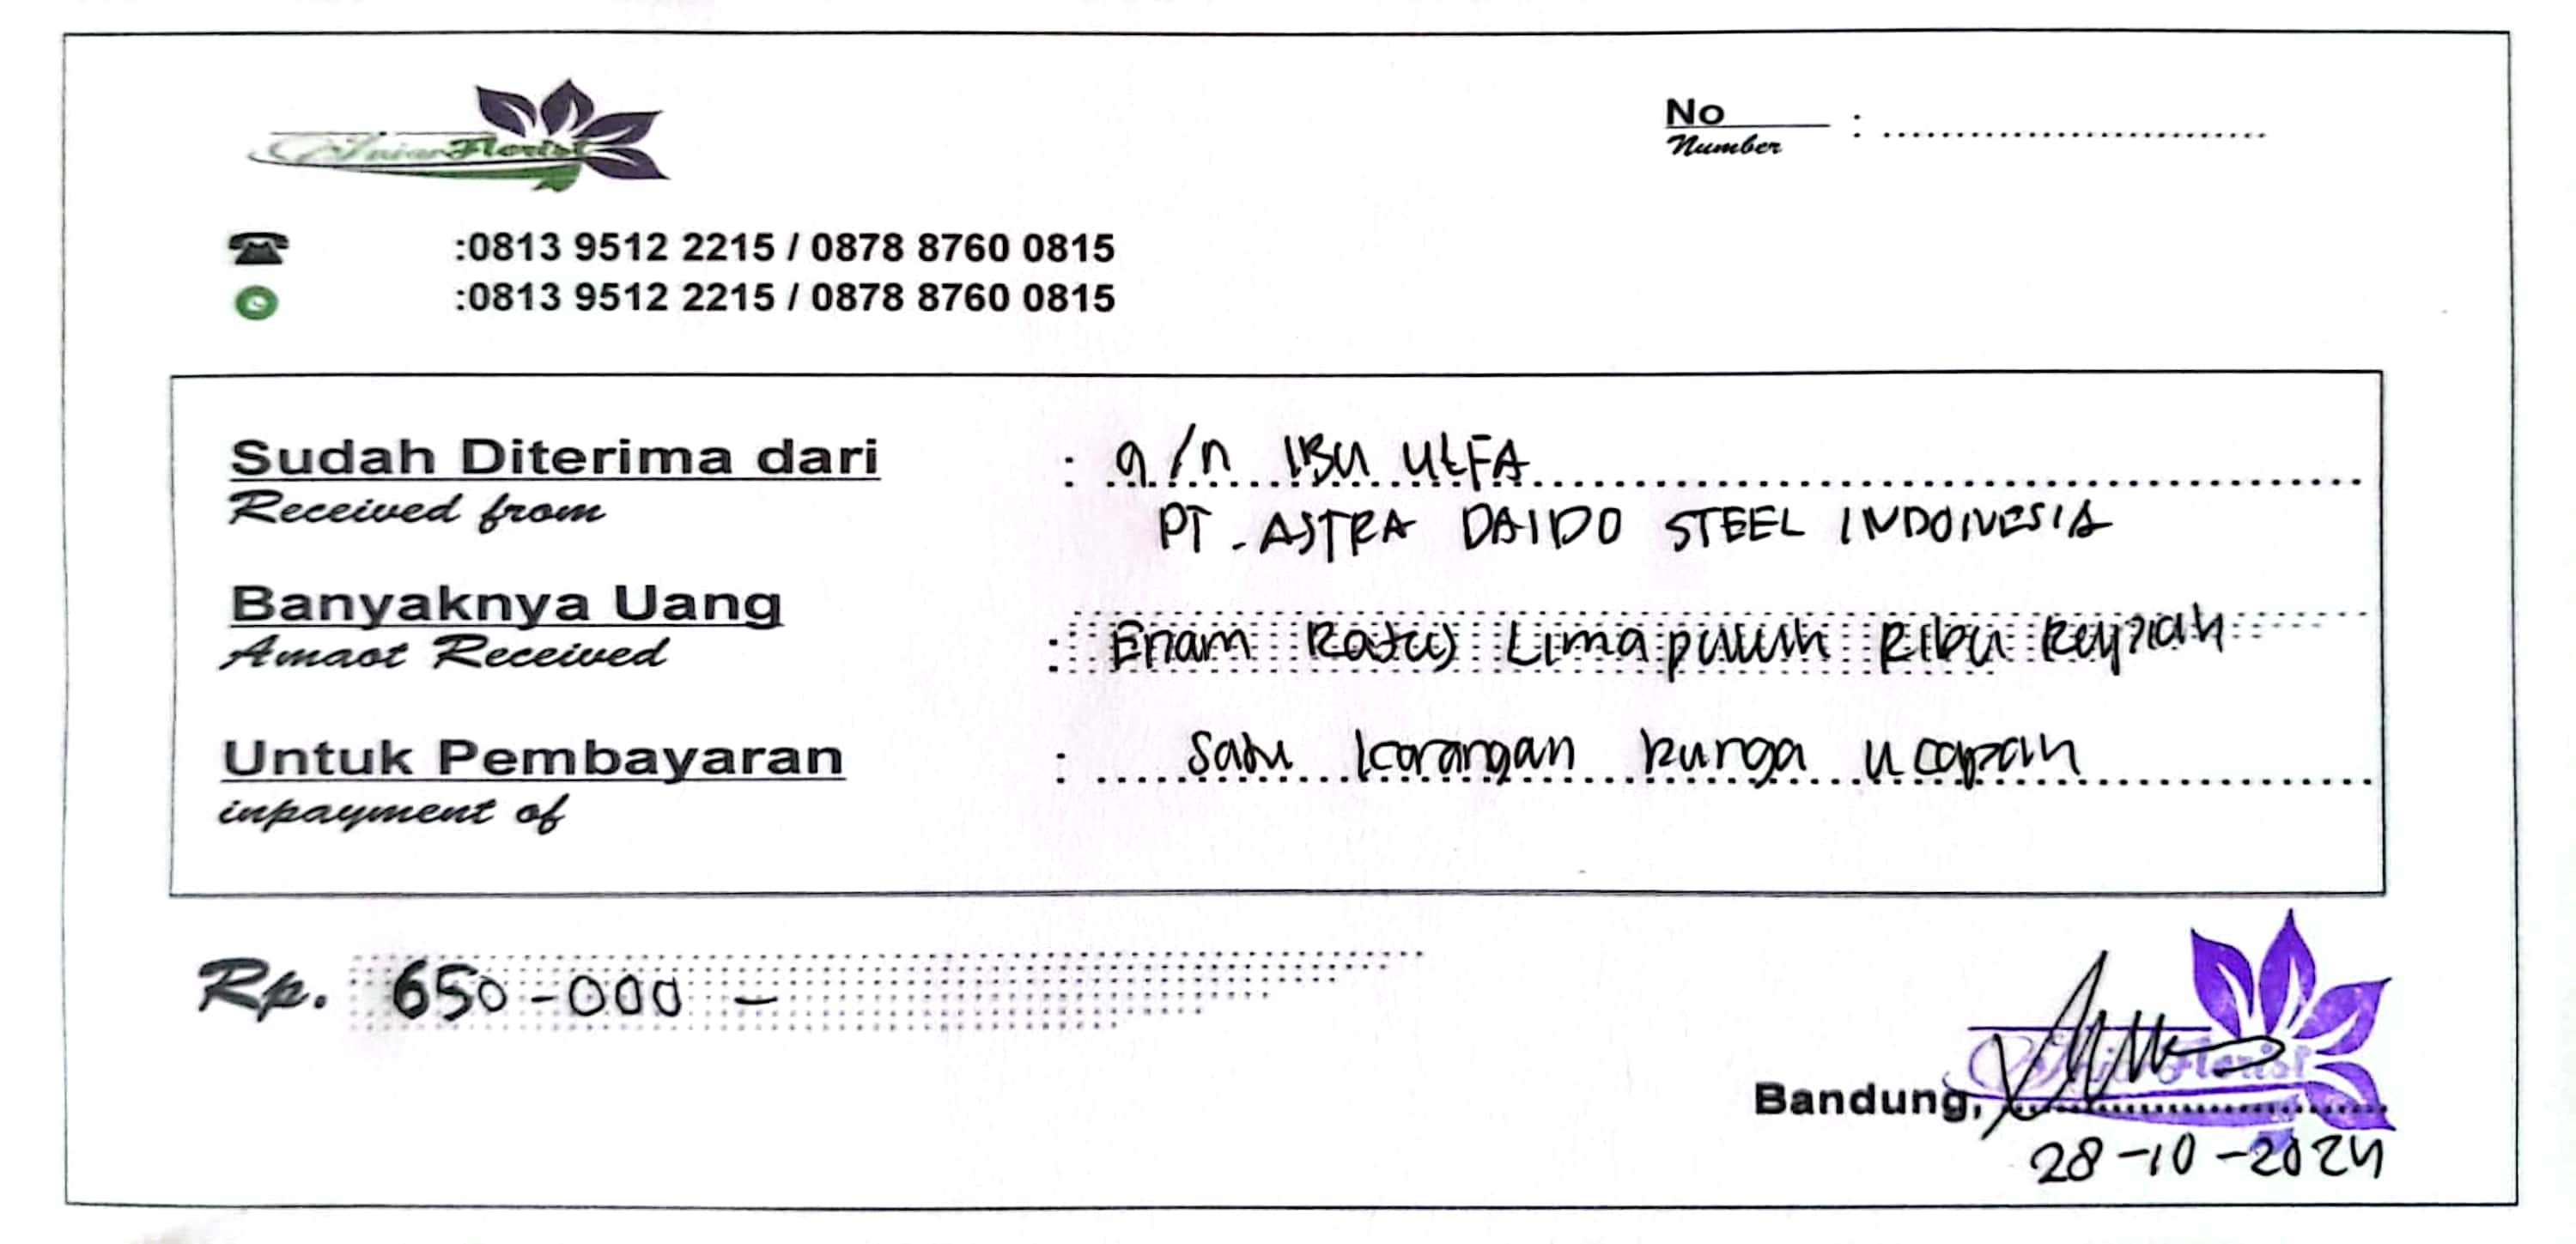 Florist
No : ..............................
Number
:0813 9512 2215 / 0878 8760 0815
:0813 9512 2215 / 0878 8760 0815
Sudah Diterima dari : a/n IBU ULFA
Received from PT. ASTRA DAIDO STEEL INDONESIA
Banyaknya Uang
Amaot Received : Enam Ratus Lima puluh Ribu Rupiah
Untuk Pembayaran : Satu karangan bunga ucapan
inpayment of
Rp. 650-000 -
Florist
Bandung,
28-10-2024